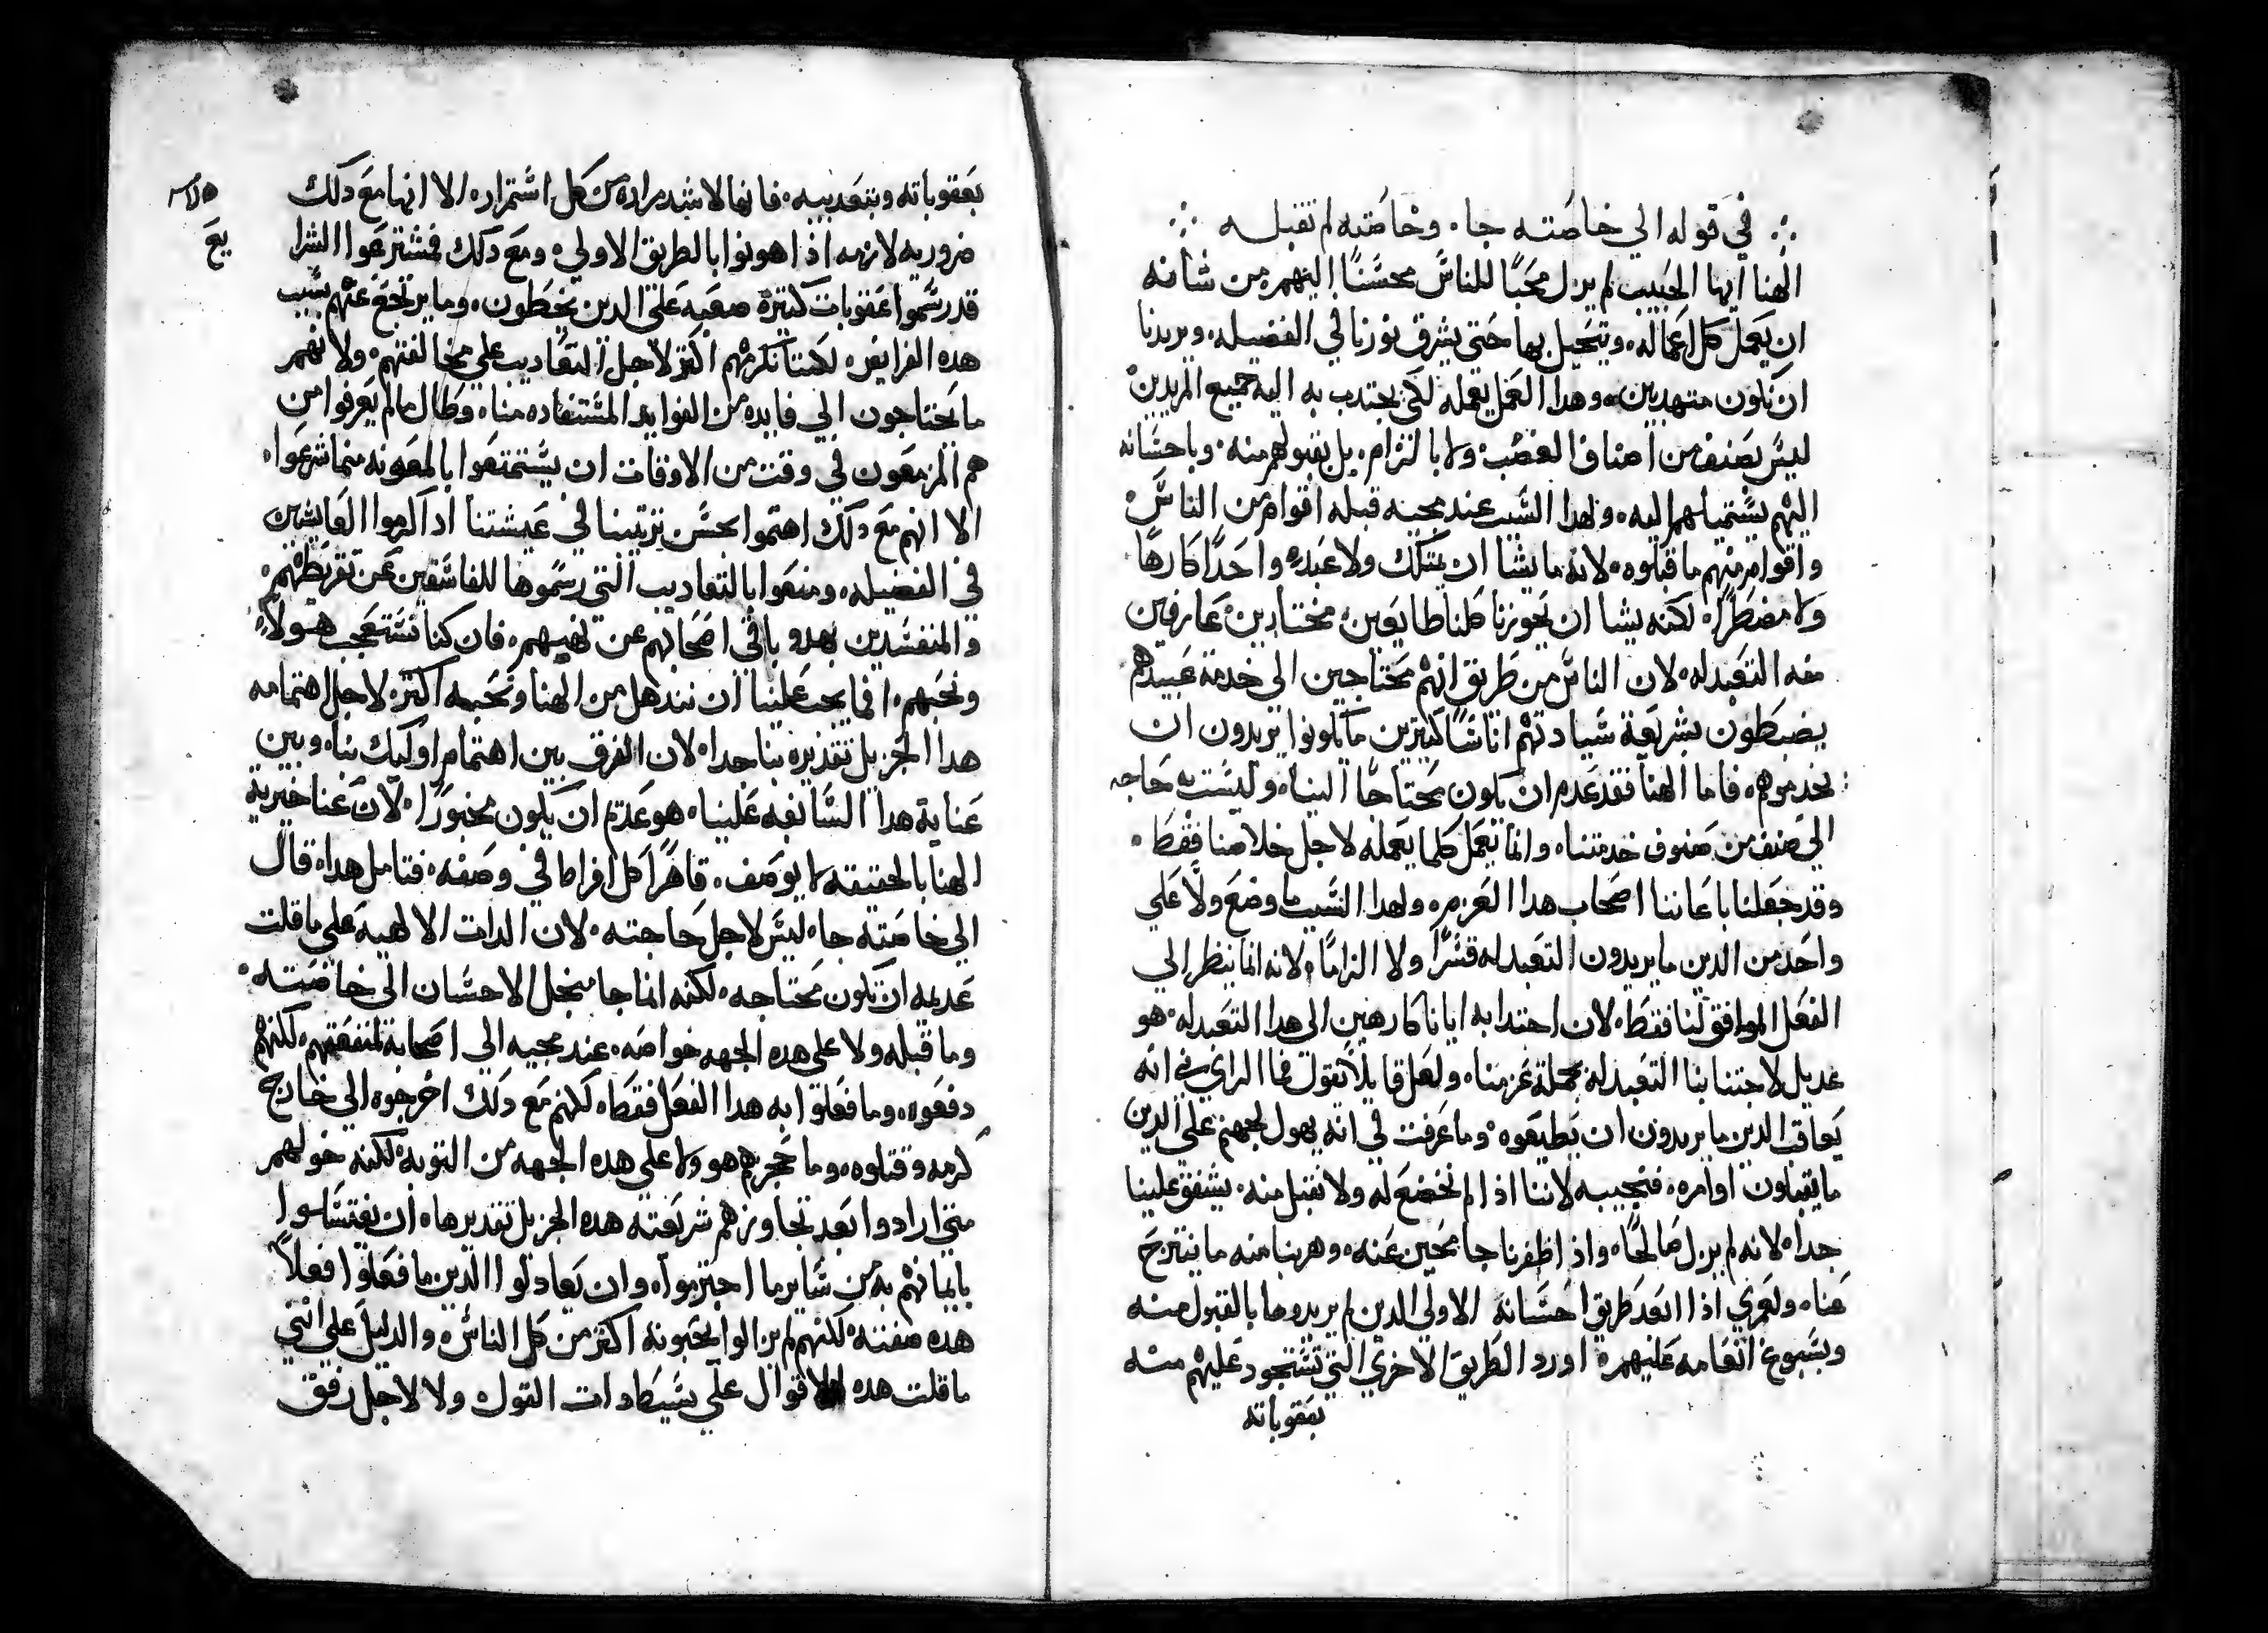 في قوله الي خاصته جا، وخاصته لم تقبله
الهنا ايها الحبيب لم يزل محبًا للناس محسنًا اليهم من شانه
ان يعمل كل اعماله، ويتحيل بها حتى يشرق نورنا في الفضيله، ويريدنا
ان نكون متهدبين، وهدا العمل يعمله لكي يجتدب به اليه جميع المريدين
ليس بصنف من اصناف الغصب ولا بالزام، بل بقبولهم منه، وباحسانه
اليهم يستميلهم اليه، ولهدا السبب عند مجيه قبله اقوام من الناس
واقوام منهم ما قبلوه، لانه ما يشا ان يمتلك ولا عبدٍ واحدًا كارهًا
ولا مضطرًا، لكنه يشا ان يحوزنا كلنا طايعين، مختارين عارفين
منه التعبد له، لان الناس من طريق انهم محتاجين الي خدمة عبيدهم
يضبطون بشريعة سيادتهم اناسًا كتيرين ما يكونوا يريدون ان
يخدموهم، فاما الهنا فقد عدم ان يكون محتاجًا الينا، وليست به حاجه
الي صنف من صنوف خدمتنا، وانما يعمل كلما يعمله لاجل خلاصنا فقط،
وقد جعلنا باعاننا اصحاب هدا العزم، ولهدا السبب ما وضع ولا علي
واحد من الدين ما يريدون التعبد له قسرًا ولا الزامًا، لانه انما ينظر الي
الفعل الموافق لنا فقط، لان اجتدابه ايانا كارهين الي هدا التعبد له، هو
عديل لاجتنابنا التعبد له بجملة عزمنا، ولعل قايلًا يقول فما الراي في انه
يعاقب الدين ما يريدون ان يطيعوه، وما عرفت في انه يهول بجهنم علي الدين
ما يقبلون اوامره، فنجيبه لاننا ادا لم نخضع له ولا نقبل منه، يشفق علينا
جدا، لانه لم يزل صالحًا، واذا ظفرنا جامحين عنه، وهربنا منه ما ينتزح
عنا، ولعمري اذا ابعد طريق احسانه الاولي الدين لم يريدوها بالقبول منه
وبسبوغ انعامه عليهم، اورد الطريق الاخري التي تستجود عليهم منه
بعقوباته
بعقوباته وبتعديبه، فانها لاشد مراره من كل استمراره، الا انها مع دلك
ضروريه لازمه اذا هونوا بالطريق الاولي، ومع دلك فمشترعوا الشرا
يع
قد رسموا عقوبات كتيرة صعبه علي الدين يخطون، وما يرتجع عنهم بسبب
هده الفرايض، لكننا نكرمهم اكتر لاجل التعاديب علي مخالفتهم، ولا نهم
ما يحتاجون الي فايده من الفوايد المستفاده منا، وطال ما لم يعرفوا من
هم المزمعون في وقت من الاوقات ان يستمتعوا بالمعونه مما شرعوا،
الا انهم مع دلك اهتموا بحسن تزتيبنا في عيشتنا ادا اكرموا العايشين
في الفضيله، ومنعوا بالتعاديب التي رسموها للفاسقين عن تفريطهم،
والمنفسدين بهدو باقي اصحابهم عن تهيبهم، فان كنا نستعجب هولاء
ونحبهم، افما يجب علينا ان نندهل من الهنا ونحبه اكتر، لاجل اهتمامه
هدا الجزيل تقديره بنا جدا، لان الفرق بين اهتمام اوليك بنا، وبين
عناية هدا السابغه علينا، هو عدم ان يكون مخبورًا، لان غنا خيرية
الهنا بالحقيقه لا يوصف، قاهرًا كل افراط في وصفه، فتامل هدا، قال
الي خاصته جا، ليس لاجل حاجته، لان الدات الالهيه علي ما قلت
عديمه ان تكون محتاجه، لكنه انما جا منجل الاحسان الي خاصته،
وما قبله ولا علي هده الجهه خواصه، عند مجيه الي اصحابه لمنفعتهم، لكنهم
دفعوه، وما فعلوا به هدا الفعل فقط، لكنهم مع دلك اخرجوه الي خارج
كرمه وقتلوه، وما حجزهم هو ولا علي هده الجهه من التوبه، لكنه خولهم
متي ارادوا بعد تجاوزهم شريعته هده الجزيل تقديرها، ان يغتسلوا
بايمانهم به من ساير ما اجترموا، وان يعادلوا الدين ما فعلوا فعلاً
هده صفته، لكنهم لم يزالوا يحبونه اكتر من كل الناس، والدليل علي انني
ما قلت هده الاقوال علي بسيط ذات القول ولا لاجل رفق